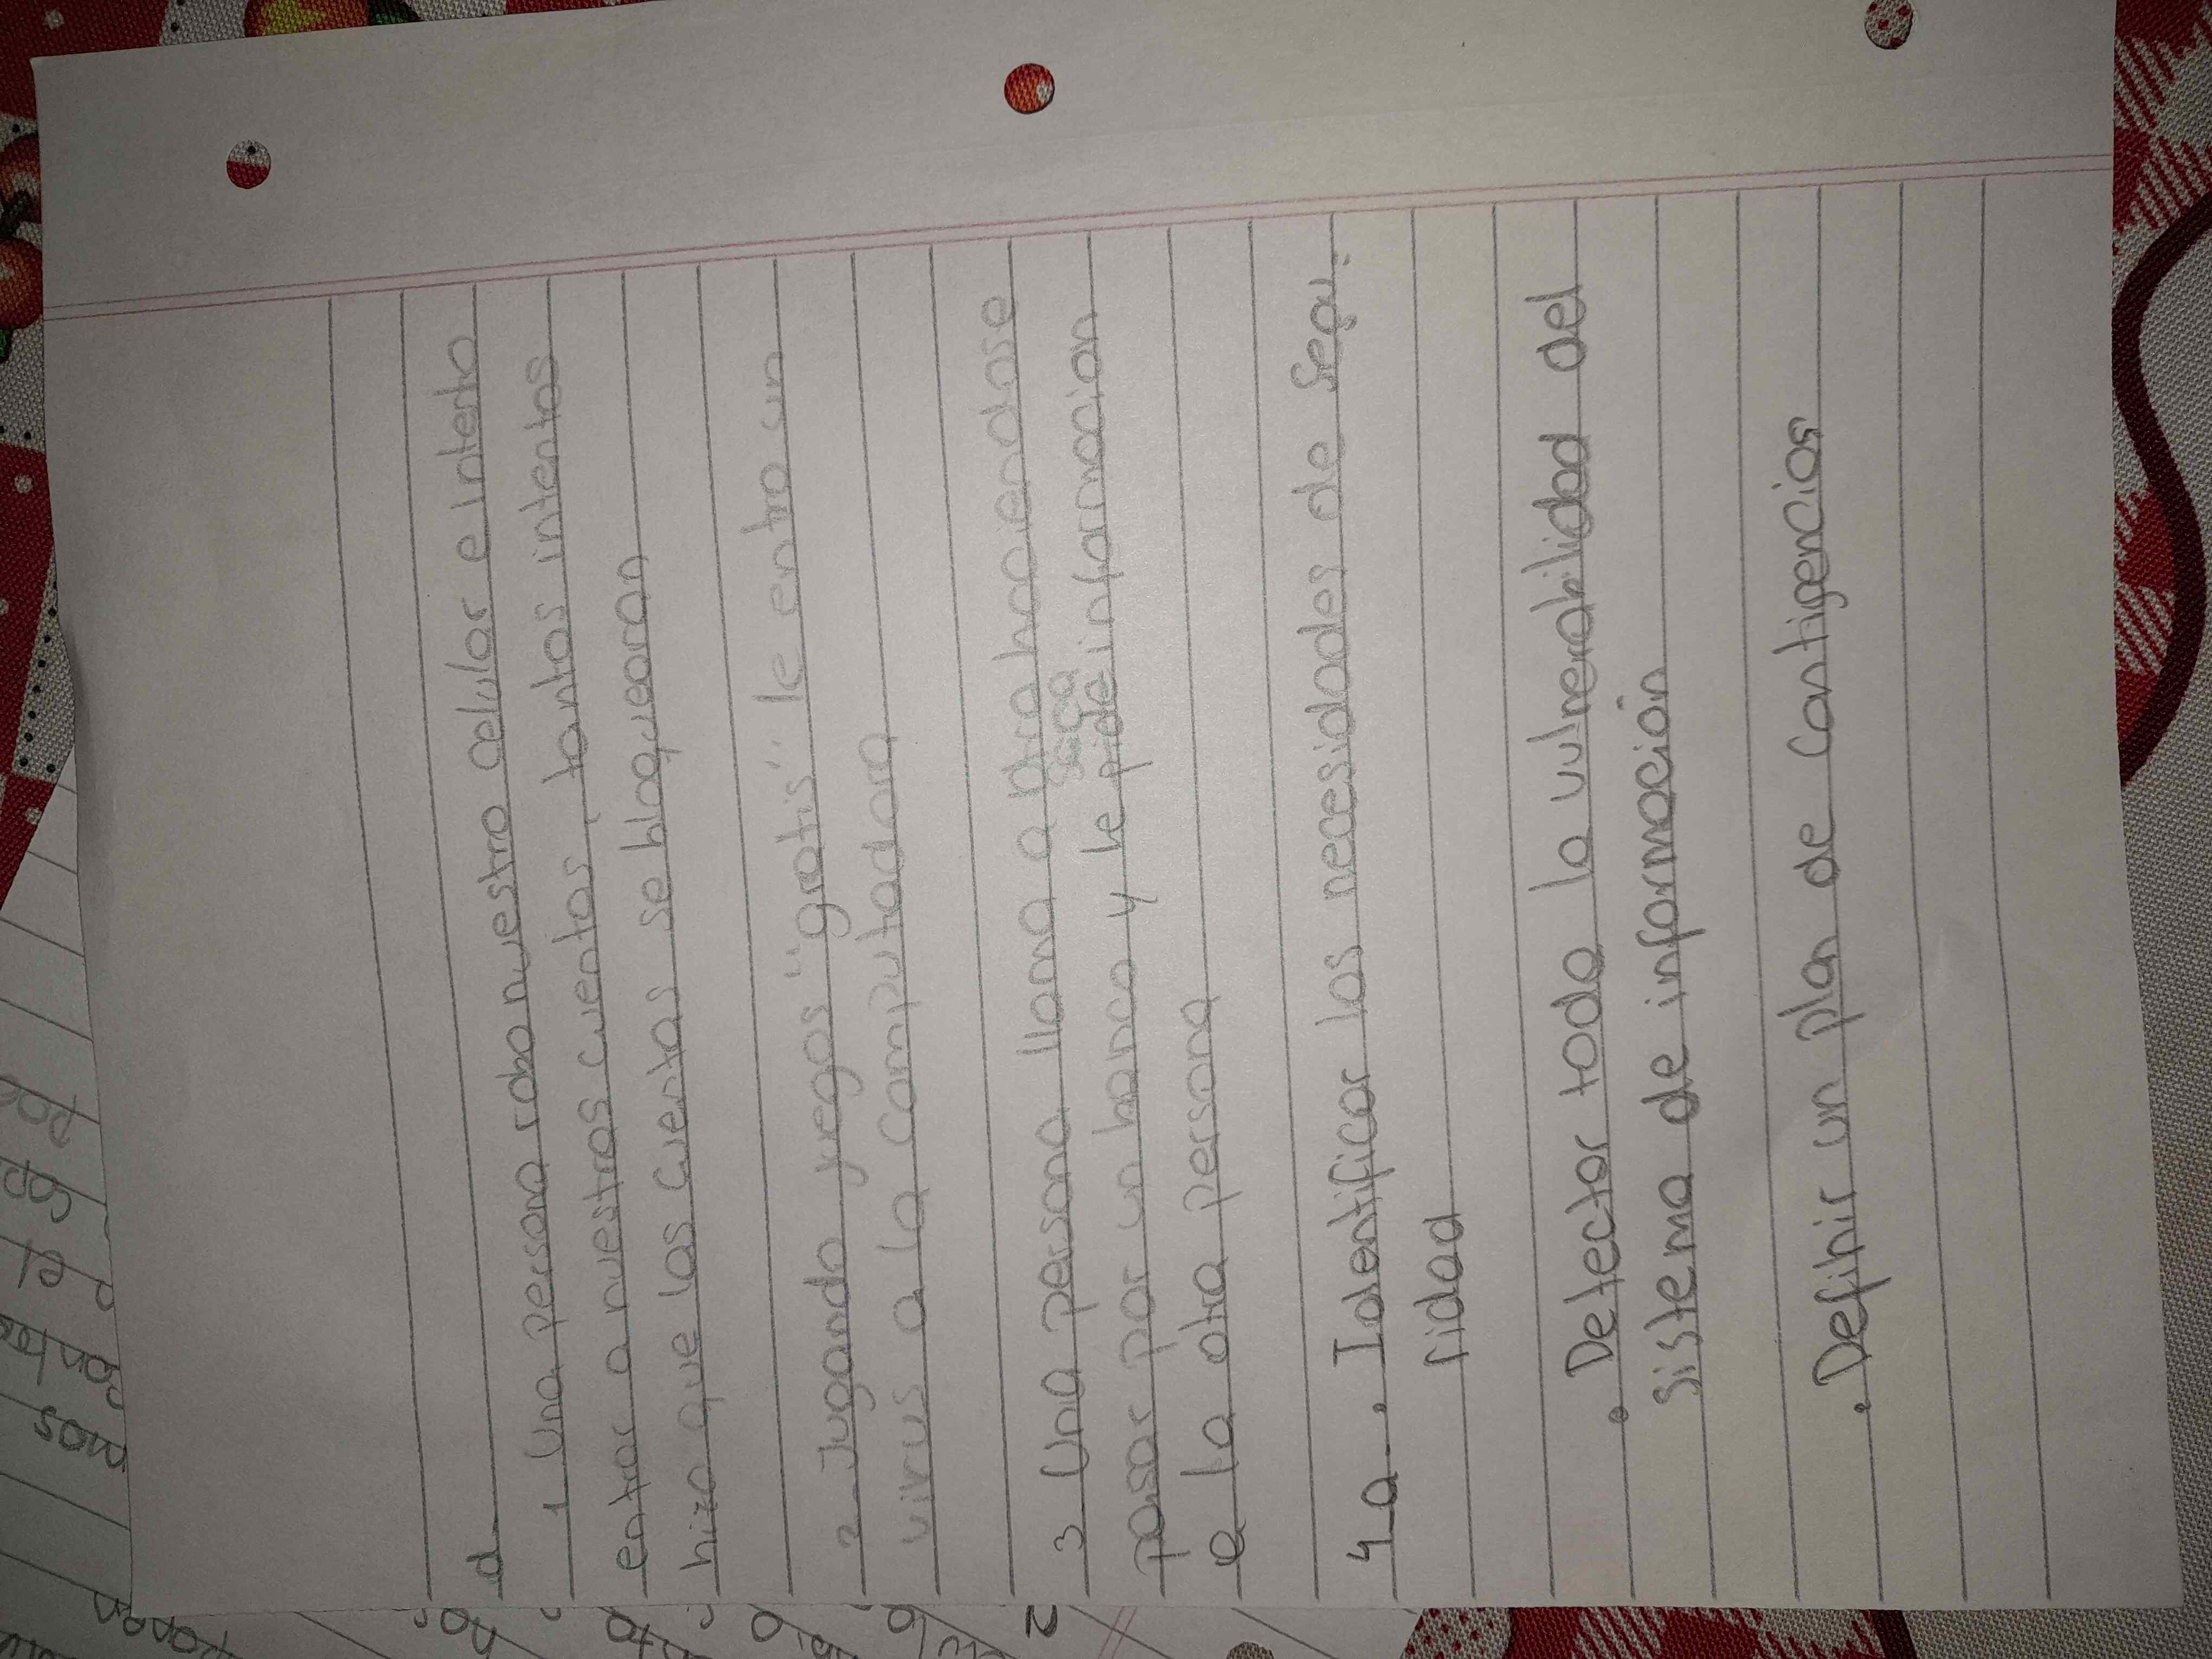 d-
1 Una persona robo nuestro celular e intento
entrar a nuestras cuentas, tantos intentos
hizo que las cuentas se bloquearan
2- Jugando juegos "gratis" le entro un
virus a la computadora
3 Una persona llama a otra haciendose
pasar por un banco y le pide informacion
saca
a la otra persona
4-a-. Identificar las necesidades de segu-
ridad
. Detectar toda la vulnerabilidad del
sistema de información
. Definir un plan de contigencias